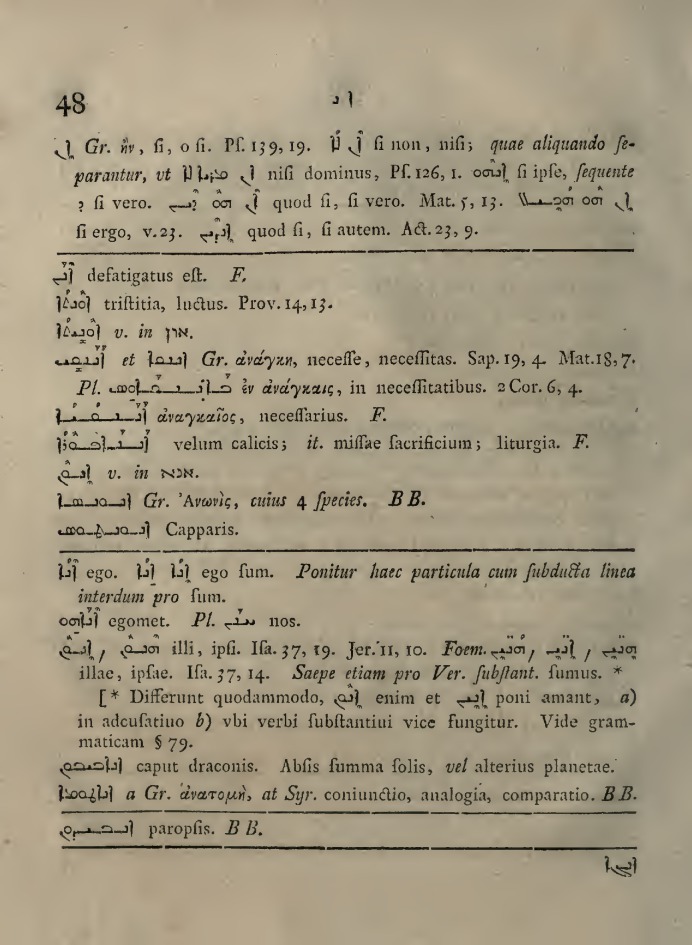 48 ܐܢ
ܐܢ Gr. ἢν, ſi, o ſi. Pſ. 139, 19. ܐܢ ܠܐ ſi non, niſi; quae aliquando ſe-
parantur, vt ܐܢ ܡܪܝܐ ܠܐ niſi dominus, Pſ. 126, 1. ܐܢܗܘ ſi ipſe, ſequente
ܕ ſi vero. ܐܢ ܗܘ ܕܝܢ quod ſi, ſi vero. Mat. 5, 13. ܐܢ ܗܘ ܗܟܝܠ
ſi ergo, v. 23. ܐܢܕܝܢ quod ſi, ſi autem. Act. 23, 9.
defatigatus eſt. F.
triſtitia, luctus. Prov. 14, 13.
v. in און.
et ܐܢܢܩܐ Gr. ἀνάγκη, neceſſe, neceſſitas. Sap. 19, 4. Mat. 18, 7.
Pl. ἐν ἀνάγκαις, in neceſſitatibus. 2 Cor. 6, 4.
ἀναγκαῖος, neceſſarius. F.
velum calicis; it. miſſae ſacrificium; liturgia. F.
v. in אנא.
Gr. Ἀνωνὶς, cuius 4 ſpecies. BB.
Capparis.
ܐܢܐ ego. ܐܢܐ ܐܢܐ ego ſum. Ponitur haec particula cum ſubducta linea
interdum pro ſum.
ܐܢܐܗܘ egomet. Pl. ܚܢܢ nos.
ܐܢܘܢ, ܗܢܘܢ illi, ipſi. Iſa. 37, 19. Jer. 11, 10. Foem. ܗܢܝܢ, ܐܢܝܢ, ܗܢܝܢ
illae, ipſae. Iſa. 37, 14. Saepe etiam pro Ver. ſubſtant. ſumus. *
[* Differunt quodammodo, ܐܢܘܢ enim et ܐܢܝܢ poni amant, a)
in adcuſatiuo b) vbi verbi ſubſtantiui vice fungitur. Vide gram-
maticam § 79.
caput draconis. Abſis ſumma ſolis, vel alterius planetae.
a Gr. ἀνατομὴ, at Syr. coniunctio, analogia, comparatio. BB.
paropſis. BB.